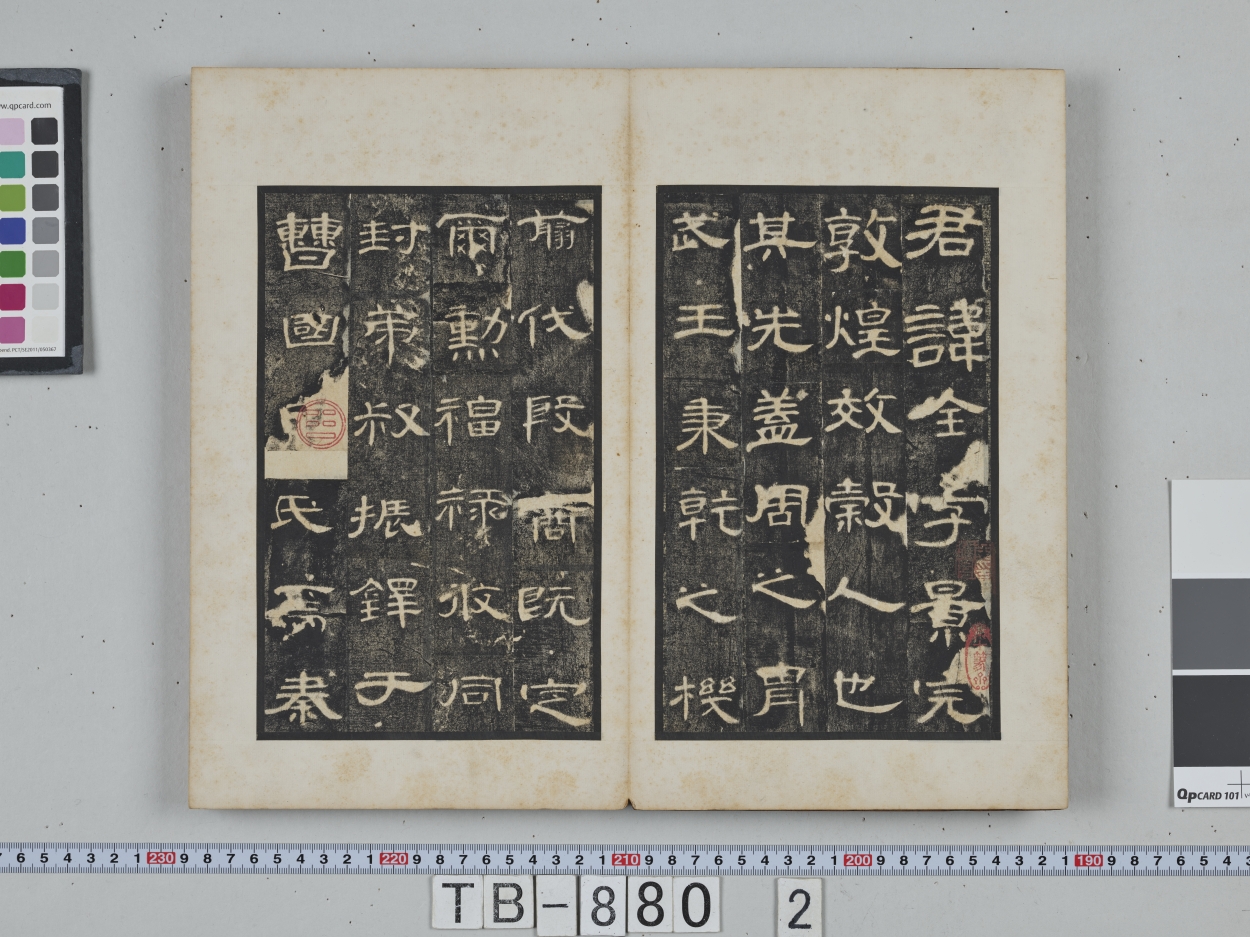 君諱全字景完
敦煌效穀人也
其先蓋周之胄
武王秉乾之機
翦伐殷商既定
爾勳福祿攸同
封弟叔振鐸于
曹國氏焉秦
.qpcard.com
QPCARD 101
6 5 4 3 2 1 230 9 8 7 6 5 4 3 2 1 220 9 8 7 6 5 4 3 2 1 210 9 8 7 6 5 4 3 2 1 200 9 8 7 6 5 4 3 2 1 190 9 8 7 6 5 4 3
TB-880 2